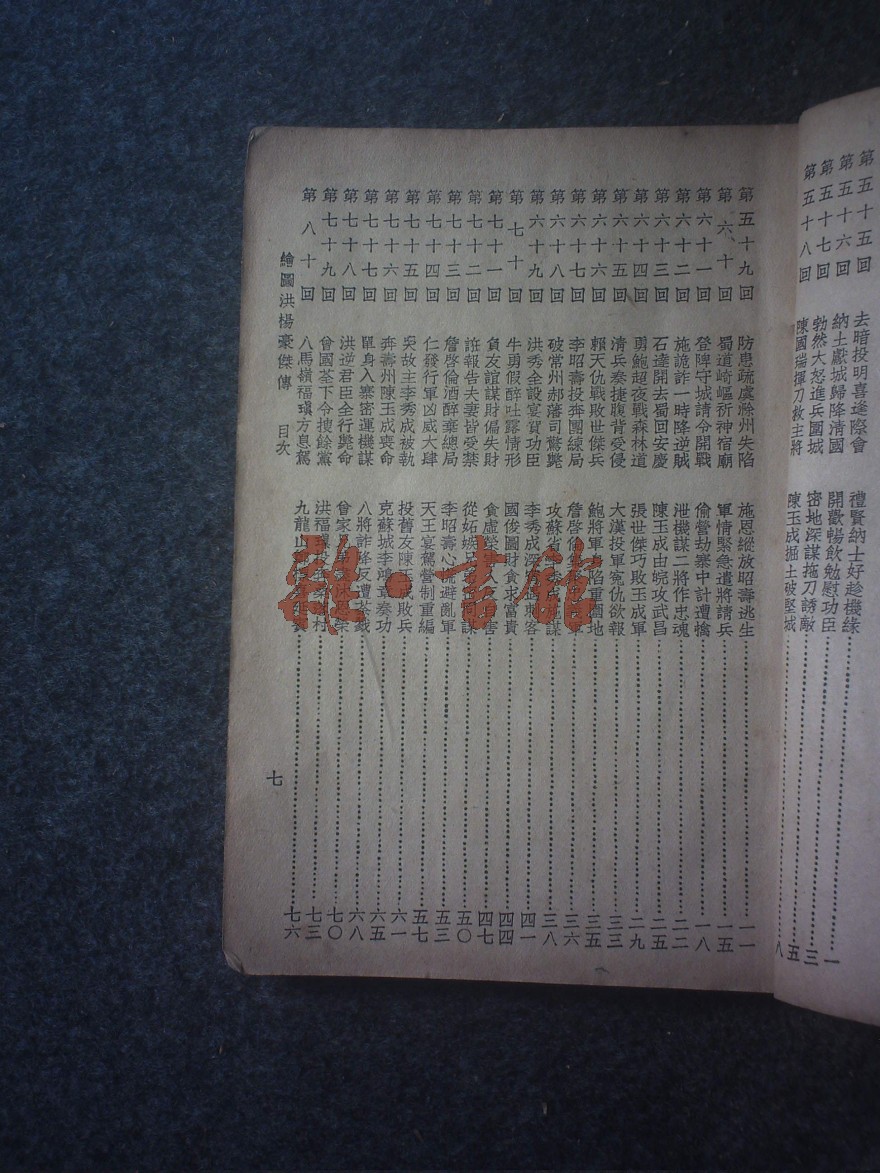 第五十五回 去暗投明喜逢際會 禮賢納士好趁機緣 一
第五十六回 納土獻城歸降清國 開歡暢飲勉慰功臣 三
第五十七回 勃然大怒進兵圍城 密地深謀拖刀誘敵 五
第五十八回 陳國瑞揮刀救主將 陳玉成掘土破堅城 八
第五十九回 防患疏虞滁州失陷 施恩縱放昭壽逃生 一一
第六十回 蜀道崎嶇祈神宿廟 軍情緊急遣將請兵 一五
第六十一回 登陴守城請令開戰 偷營劫寨中計遭擒 一八
第六十二回 施詭詐一時降逆賊 泄機謀二將作忠魂 二二
第六十三回 石達開去蜀回安慶 陳玉成由皖攻武昌 二五
第六十四回 勇鮑超夜戰森林道 張世傑巧敗玉成軍 二九
第六十五回 清兵奏捷腹背受侵 大漢投軍寃仇欲報 三三
第六十六回 賴天仇戰敗世傑兵 鮑將軍陷重圍地 三五
第六十七回 李昭壽投奔團練局 詹啓倫 三六
第六十八回 破常州郝藩司驚斃 攻蘇省 三八
第六十九回 洪秀全設宴賓功臣 李秀成深 客 四一
第七十回 牛勇假醉吐露情形 國俊圖財貪求富貴 四四
第七十一回 貪友誼謀財偏失財 貪虛榮 害 四七
第七十二回 誑報告夫妻皆受禁 從妬嫉兄 謀 五〇
第七十三回 詹啓倫酒醉棄總局 李昭壽心慌避亂軍 五三
第七十四回 仁發行軍凶威大肆 天王宴駕營制重編 五七
第七十五回 哭故主李秀成被執 投舊友陳玉成敗兵 六一
第七十六回 奔壽州陳玉成喪命 克蘇城李鴻章奏功 六五
第七十七回 單身入寨密運機謀 八將詐降反遭荼戮 六八
第七十八回 洪逆君臣全行斃命 曾家 榮 七〇
第七十九回 曾國荃下令搜餘黨 洪福瑱投 村 七三
第八十回 八馬嶺福瑱方息駕 九龍山 七六
繪圖洪楊豪傑傳 目次
七
雜·書館